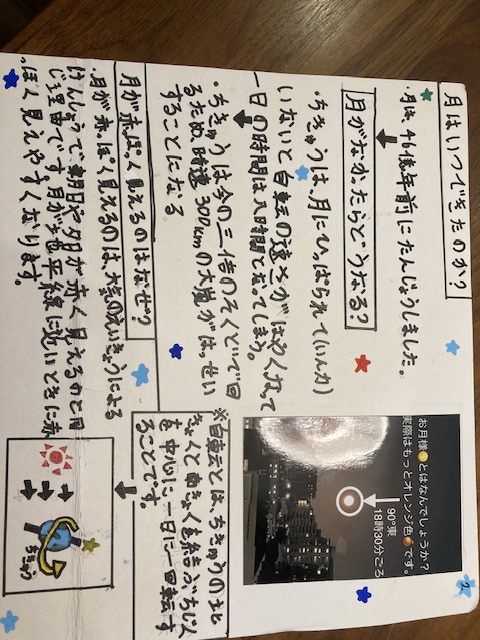 月はいつできたのか？
・月は、46億年前にたんじょうしました。
月がなかったらどうなる？
・ちきゅうは、月にひっぱられて(いん力)
いないと自転の速さがはやくなって
一日の時間は八時間となってしまう。
・ちきゅうは今の三倍のそくどで回
るため、時速300kmの大嵐がはっせい
することになる
お月様🟡とはなんでしょうか？
実際はもっとオレンジ色🟠です。
90°東
18時30分ごろ
月が赤っぽく見えるのはなぜ？
・月が赤っぽく見えるのは、大気のえいきょうによる
けんしょうで朝日や夕日が赤く見えるのと同
じ理由です。月が地平線に近いときに赤
っぽく見えやすくなります。
※自転とは、ちきゅうの北
きょくと南きょくを結ぶちじく
を中心に一日に一回転す
ることです。
ちきゅう